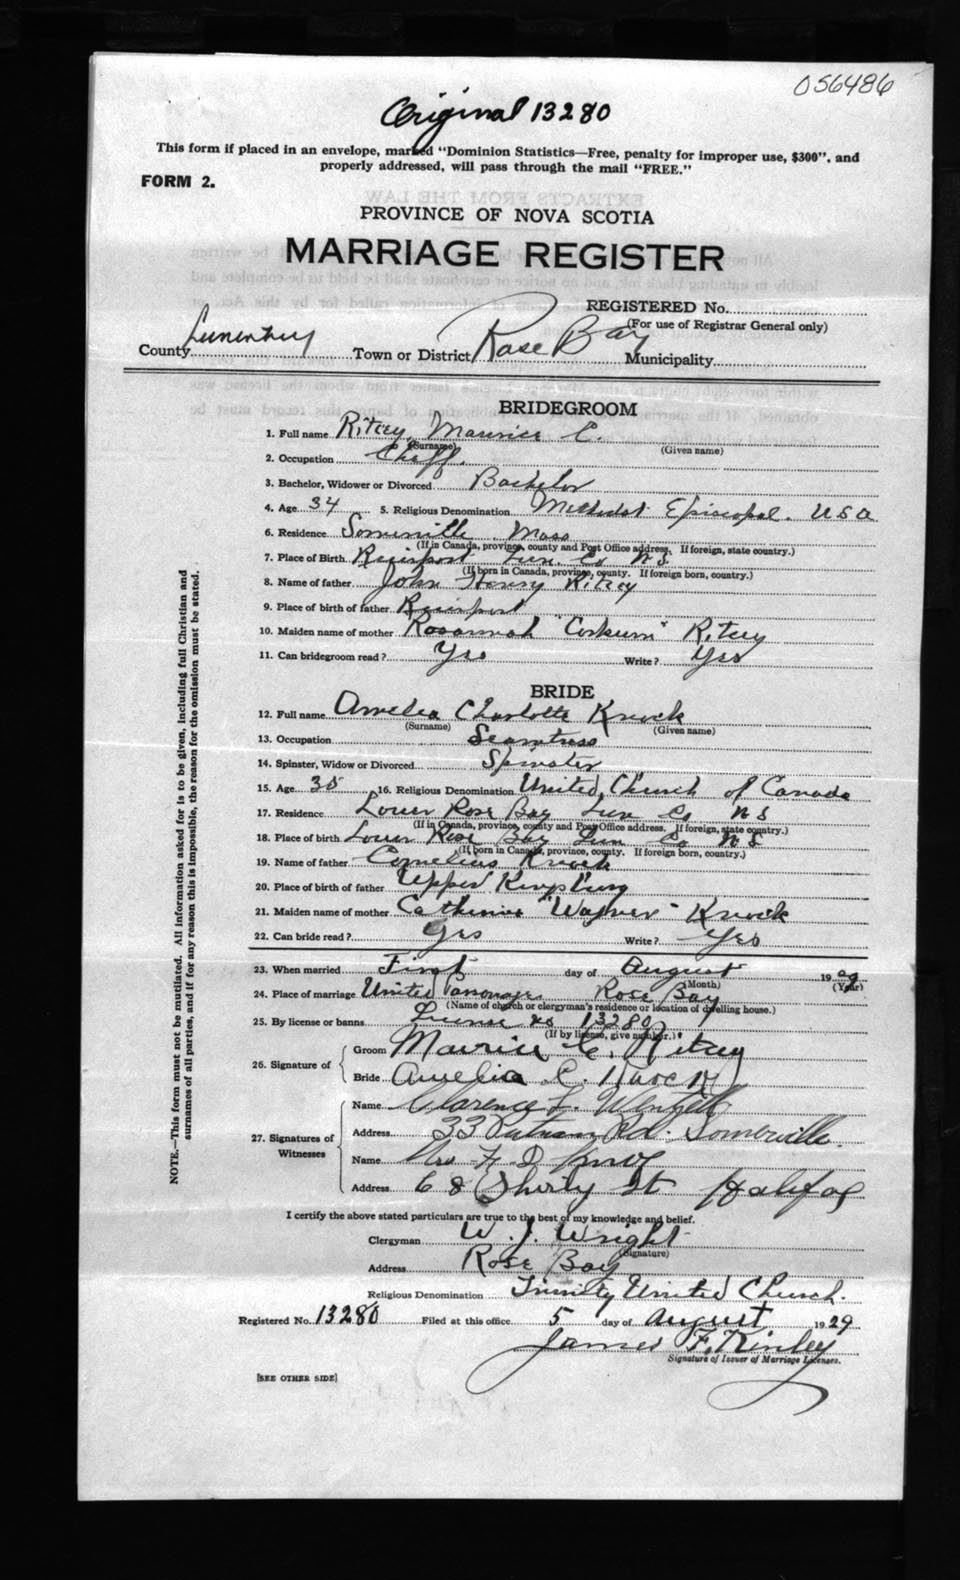 056486
Original 13280
This form if placed in an envelope, marked "Dominion Statistics—Free, penalty for improper use, $300", and
properly addressed, will pass through the mail "FREE."
FORM 2.
PROVINCE OF NOVA SCOTIA
MARRIAGE REGISTER
REGISTERED No.
(For use of Registrar General only)
County Lunenburg Town or District Rose Bay Municipality
BRIDEGROOM
1. Full name Ritcey, Maurice C.
(Surname) (Given name)
2. Occupation Cheff.
3. Bachelor, Widower or Divorced Bachelor
4. Age 34 5. Religious Denomination Methodist Episcopal. USA
6. Residence Somerville Mass
(If in Canada, province, county and Post Office address. If foreign, state country.)
7. Place of Birth Riverport Lun Co NS
(If born in Canada, province, county. If foreign born, country.)
8. Name of father John Henry Ritcey
9. Place of birth of father Riverport
10. Maiden name of mother Rosannah "Corkum" Ritcey
11. Can bridegroom read? Yes Write? Yes
BRIDE
12. Full name Amelia Charlotte Knock
(Surname) (Given name)
13. Occupation Seamtress
14. Spinster, Widow or Divorced Spinster
15. Age 35 16. Religious Denomination United Church of Canada
17. Residence Lower Rose Bay Lun Co NS
(If in Canada, province, county and Post Office address. If foreign, state country.)
18. Place of birth Lower Rose Bay Lun Co NS
(If born in Canada, province, county. If foreign born, country.)
19. Name of father Cornelius Knock
20. Place of birth of father Upper Kingsburg
21. Maiden name of mother Catherine "Wagner" Knock
22. Can bride read? Yes Write? Yes
23. When married First day of August 1929
(Month) (Year)
24. Place of marriage United Parsonage Rose Bay
(Name of church or clergyman's residence or location of dwelling house.)
25. By license or banns License no 13280
(If by license, give number.)
26. Signature of
Groom Maurice C. Ritcey
Bride Amelia C. Knock
27. Signatures of Witnesses
Name Clarence F. Wentzell
Address 33 Putnam Rd. Somerville.
Name Mrs F D
Address 68 Shirly St Halifax
I certify the above stated particulars are true to the best of my knowledge and belief.
Clergyman W. J. Wright
(Signature)
Address Rose Bay
Religious Denomination Trinity United Church.
Registered No. 13280 Filed at this office 5 day of August 1929
James F. Kinley
Signature of Issuer of Marriage Licenses.
[SEE OTHER SIDE]
NOTE.—This form must not be mutilated. All information asked for is to be given, including full Christian and
surnames of all parties, and if for any reason this is impossible, the reason for the omission must be stated.